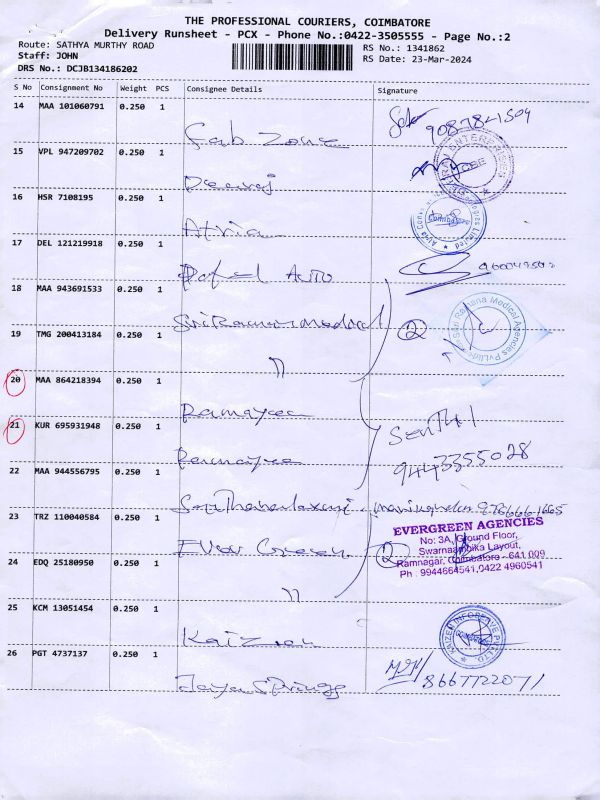 THE PROFESSIONAL COURIERS, COIMBATORE
Delivery Runsheet - PCX - Phone No.:0422-3505555 - Page No.:2
Route: SATHYA MURTHY ROAD
RS No.: 1341862
Staff: JOHN
RS Date: 23-Mar-2024
DRS No.: DCJB134186202
S No Consignment No Weight PCS Consignee Details Signature
14 MAA 101060791 0.250 1
Fab Zone
15 VPL 947209702 0.250 1
16 HSR 7108195 0.250 1
Atria
17 DEL 121219918 0.250 1
Auto
18 MAA 943691533 0.250 1
Medical
19 TMG 200413184 0.250 1
②
"
20 MAA 864218394 0.250 1
Ramayee
21 KUR 695931948 0.250 1
9443355028
Ramayee
22 MAA 944556795 0.250 1
23 TRZ 110040584 0.250 1
Ever Green
EVERGREEN AGENCIES
No: 3A, Ground Floor,
Swarnaambika Layout,
Ramnagar, Coimbatore - 641 009
Ph : 9944664541,0422 4960541
24 EDQ 25180950 0.250 1
"
25 KCM 13051454 0.250 1
Kaizen
KAIZEN INFOSERVE PVT LTD
26 PGT 4737137 0.250 1
8667722071
Jaya Springs